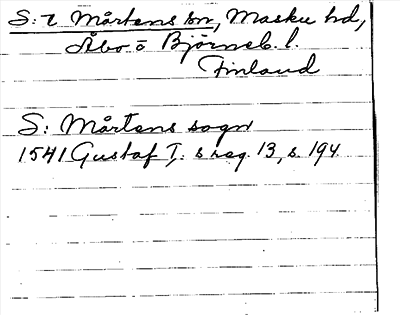 S:t Mårtens sn, Masku hd,
Åbo o Björneb. l.
Finland
S: Mårtens sogn
1541 Gustaf I: s reg. 13, s. 194